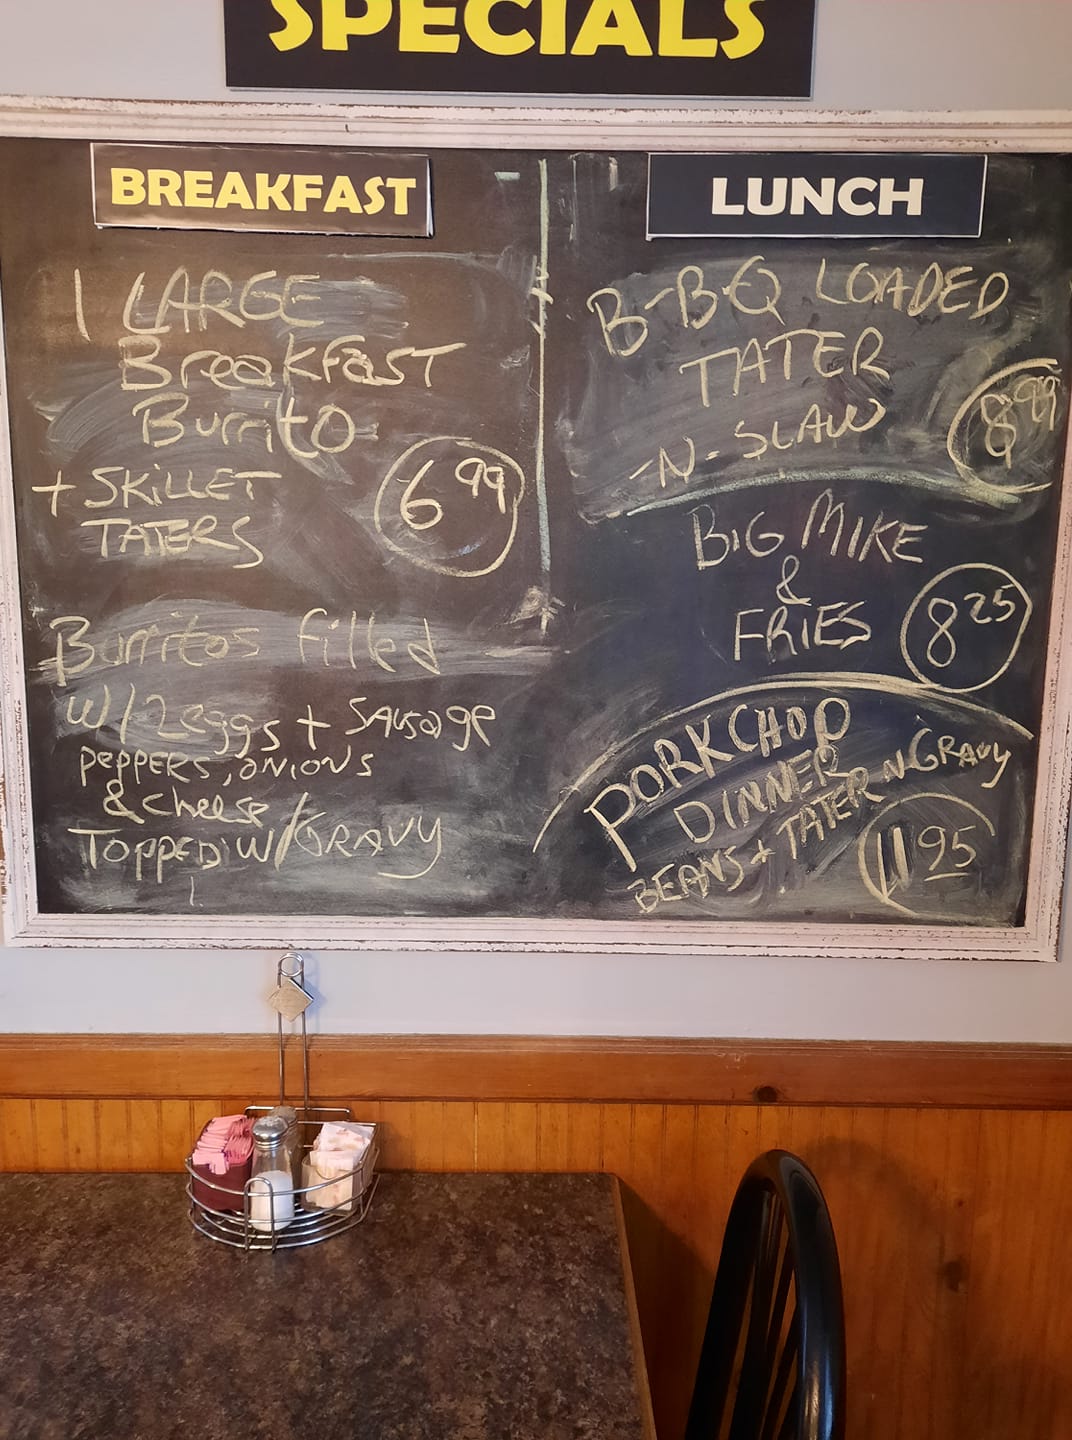 SPECIALS
BREAKFAST
1 LARGE
Breakfast
Burrito
+ SKILLET
TATERS
6 99
Burritos filled
w/ 2 eggs + SAUSAGE
PEPPERS, ONIONS
& cheese
TOPPED W/ GRAVY
LUNCH
B-B-Q LOADED
TATER
-N- SLAW
8 99
BIG MIKE
&
FRIES
8 25
PORKCHOP
DINNER
BEANS + TATER N GRAVY
11 95